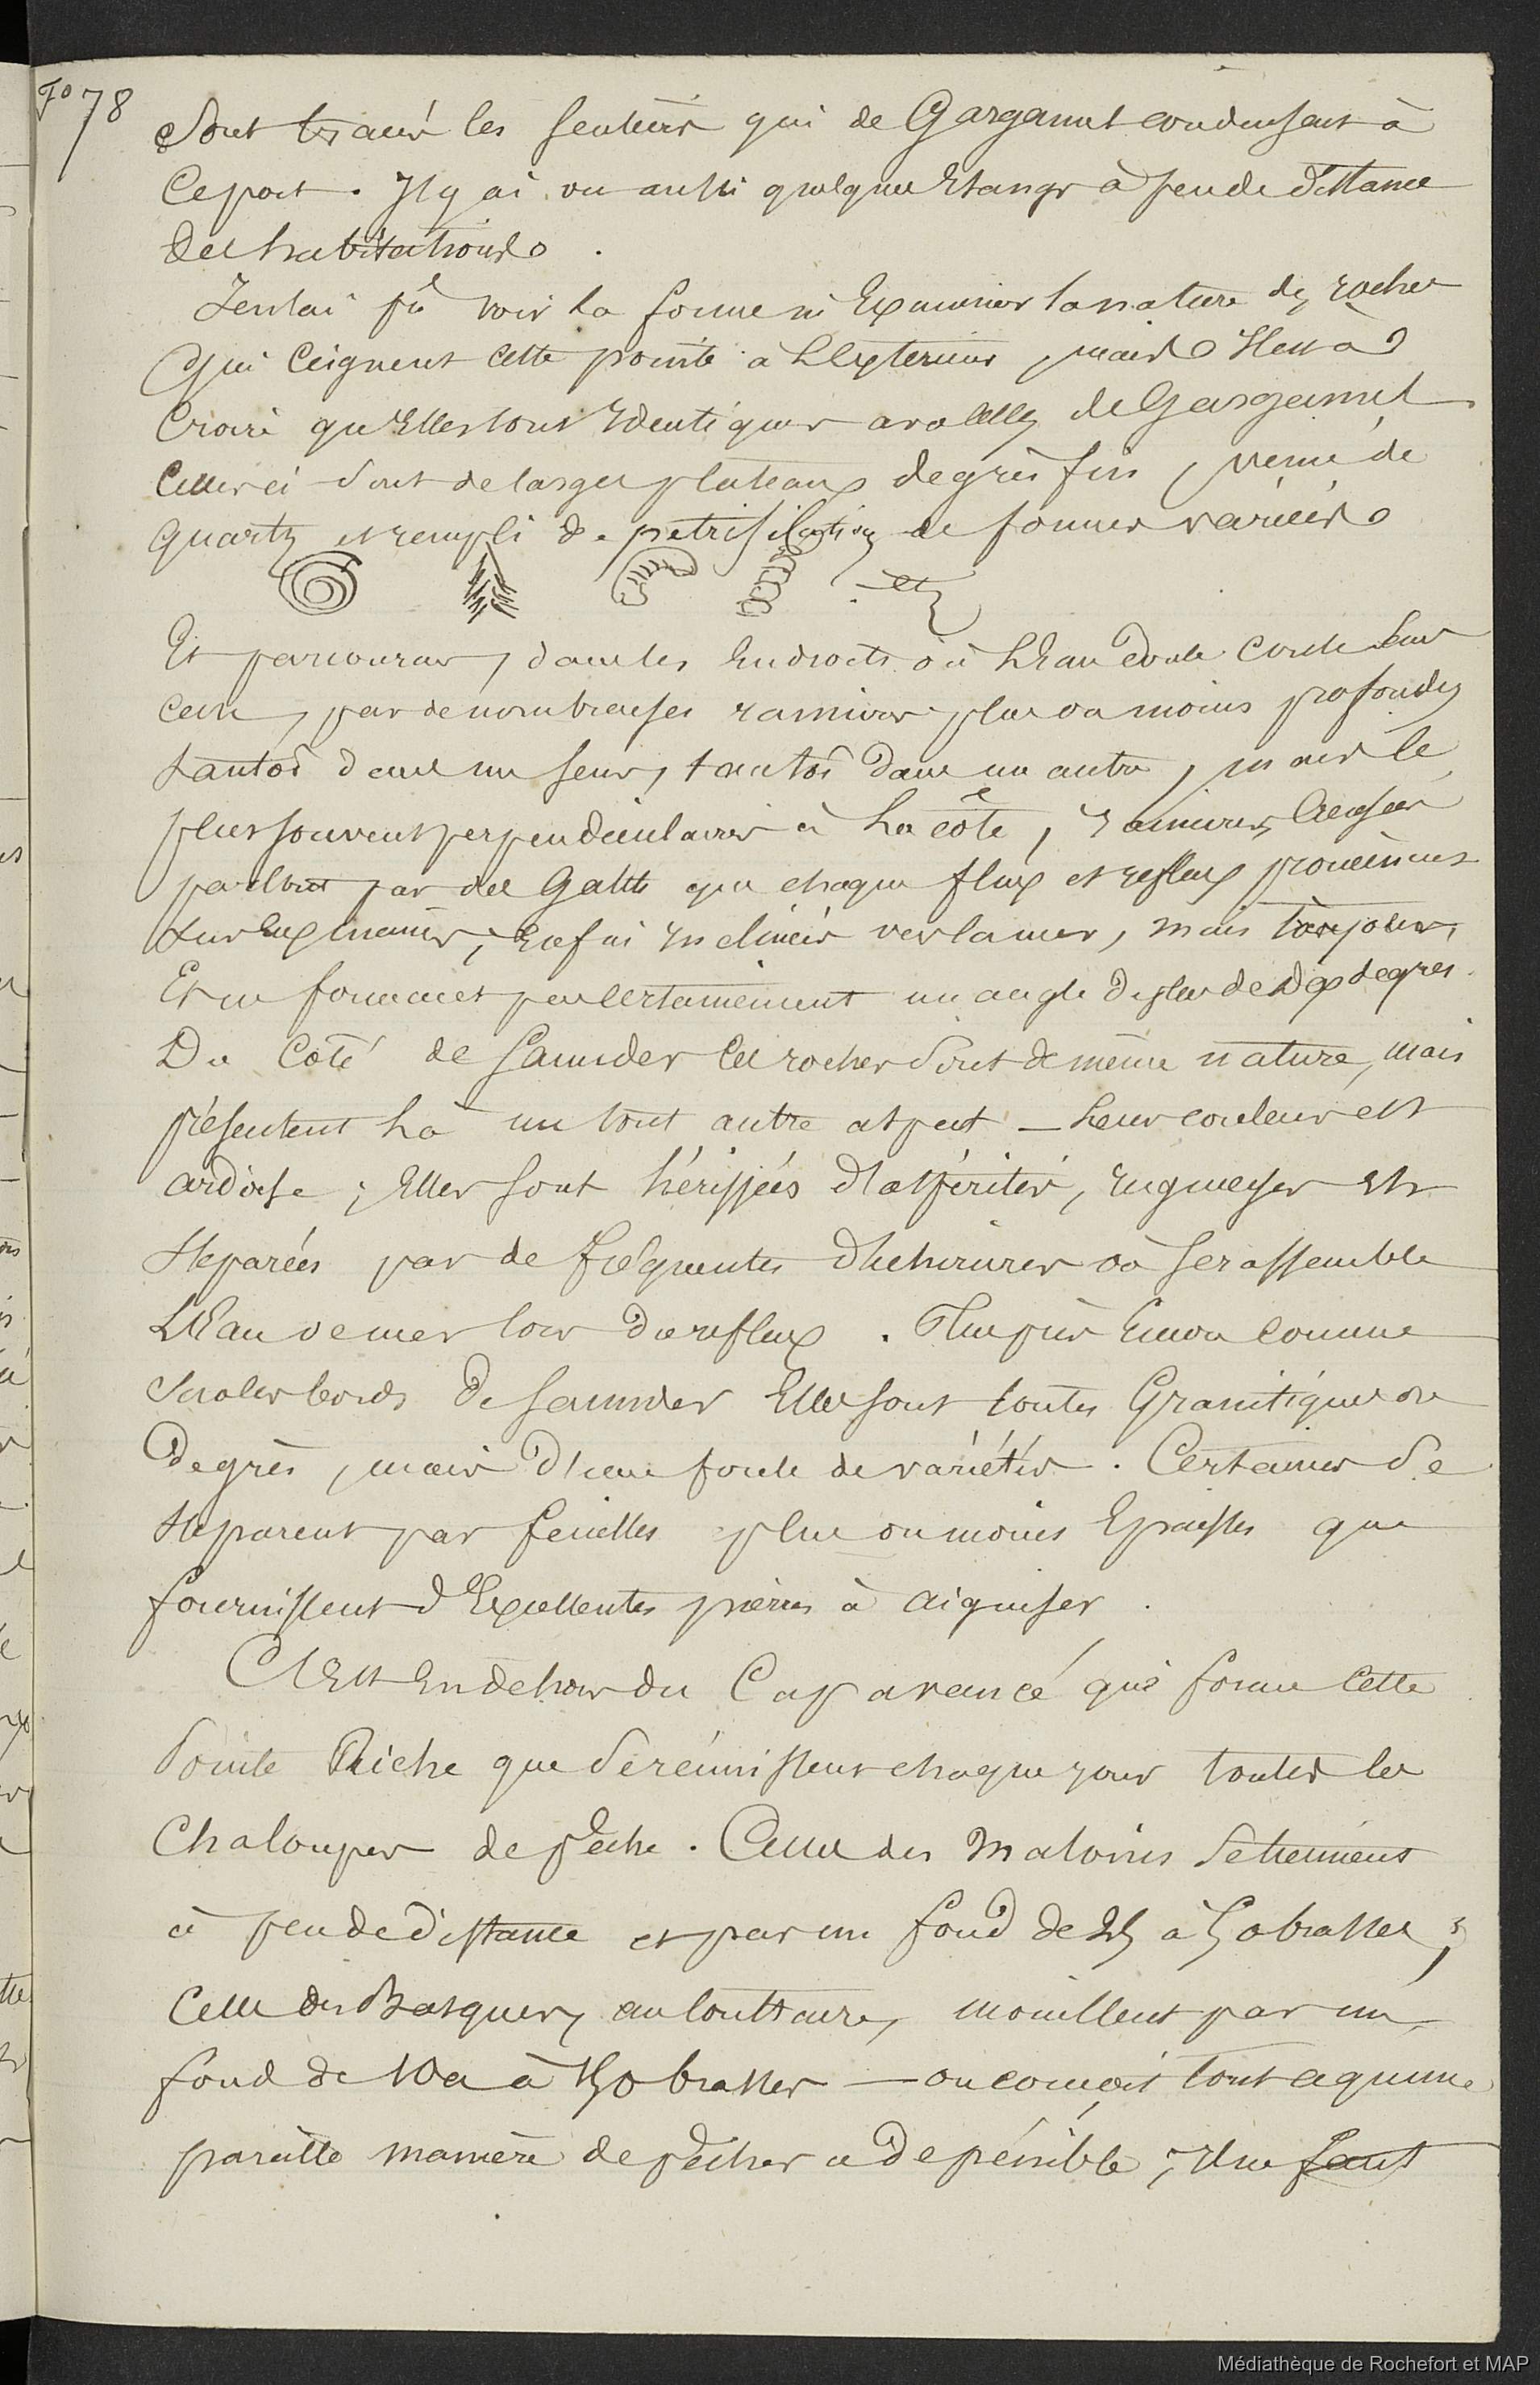 Fo 78
Sont tracés les sentiers qui de Gargamel conduisent à
Ce port. Il y ai vu aussi quelques Etangs à peu de distance
des habitations.
Je n'ai pû voir la forme ni Examiner la nature des roches
qui Ceignent cette pointe à L'Exterieur, mais Il est à
Croire qu'Elles sont Identiques avec celles de Gargamel
Celles ci sont de larges plateaux de grès fin, veiné de
quartz et rempli de petrifications de formes variées
etc
Et parcourus, dans les Endroits où L'Eau coule Sur
par de nombreuses rainures plus ou moins profondes
tantot dans un sens, tantot dans un autre, mais le
plus souvent perpendiculaires à La côte, rainures Creusées
par des Galets que chaque flux et reflux promènent
Inclinées vers la mer, mais toujours,
Et ne formant certainement un angle de plus de degres.
Du Côté de Saunder Ces roches Sont de même nature, mais
présentent Là un tout autre aspect — Leur couleur est
ardoise ; Elles sont hérissées d'aspérités, rugueuses et
Séparées par de fréquentes déchirures où se rassemble
L'Eau de mer lors du reflux. comme
Sur les bords de Saunder Elles sont toutes Granitiques ou
De grès, mais d'une foule de variétés. Certaines Se
Séparent par feuilles plus ou moins Epaisses que
fournissent d'Excellentes pierres à aiguiser.
C'Est En dehors du Cap avancé que forme Cette
Pointe Riche que Se réunissent chaque jour toutes les
Chaloupes de pêche. Celles des Malouins Se tiennent
à peu de distance et par un fond de 25 à 30 brasses ;
Celles des Basques, au Contraire, mouillent par un
fond de à 150 brasses — on conçoit tout a qu'une
pareille manière de pêcher a de pénible ; Il ne faut
Médiathèque de Rochefort et MAP